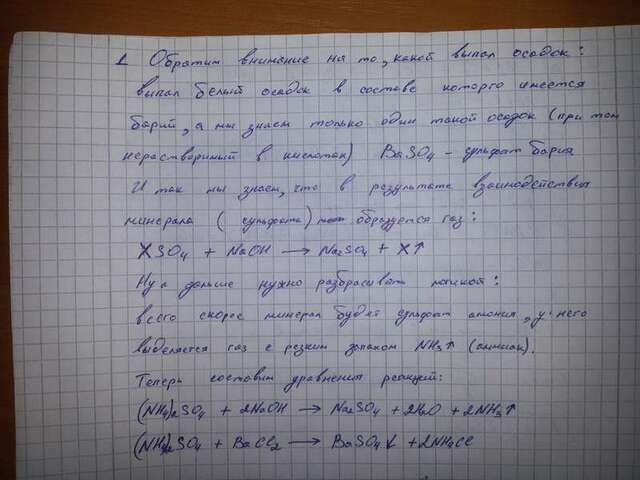 1 Обратим внимание на то, какой выпал осадок:
выпал белый осадок в составе которго имеется
барий, а мы знаем только один такой осадок (при том
нерастворимый в кислотах) BaSO4 - сульфат бария
И так мы знаем, что в результате взаимодействия
минерала ( сульфата) образуется газ:
XSO4 + NaOH → Na2SO4 + X↑
Ну а дальше нужно разбрасывать логикой:
всего скорее минерал будет сульфат амония, у него
выделяется газ с резким запахом NH3↑ (аммиак).
Теперь составим уравнения реакций:
(NH4)2SO4 + 2NaOH → Na2SO4 + 2H2O + 2NH3↑
(NH4)2SO4 + BaCl2 → BaSO4↓ + 2NH4Cl